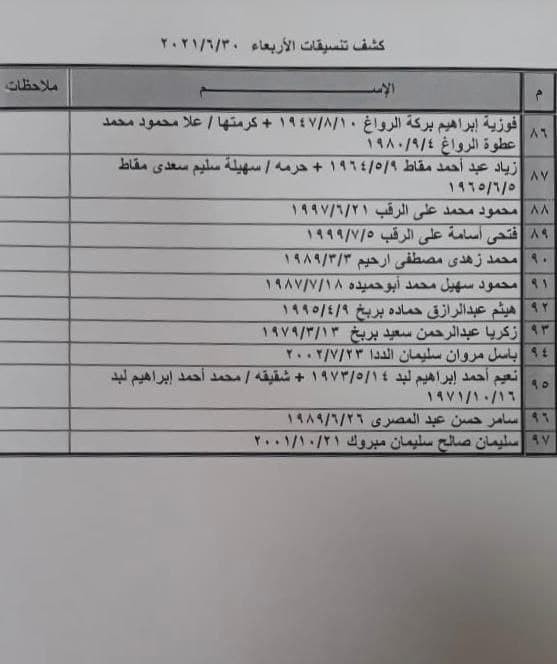 كشف تنسيقات الأربعاء ٢٠٢١/٦/٣٠
م الإســـــــــم ملاحظات
٨٦ فوزية إبراهيم بركة الرواغ ١٩٤٧/٨/١٠ + كرمتها / علا محمود محمد
عطوة الرواغ ١٩٨٠/٩/٤
٨٧ زياد عبد أحمد مقاط ١٩٦٤/٥/٩ + حرمه / سهيلة سليم سعدى مقاط
١٩٦٥/٦/٥
٨٨ محمود محمد على الرقب ١٩٩٧/٦/٢١
٨٩ فتحى أسامة على الرقب ١٩٩٩/٧/٥
٩٠ محمد زهدى مصطفى ارحيم ١٩٨٩/٣/٣
٩١ محمود سهيل محمد أبوحميده ١٩٨٧/٧/١٨
٩٢ هيثم عبدالرازق حماده بربخ ١٩٩٥/٤/٩
٩٣ زكريا عبدالرحمن سعيد بربخ ١٩٧٩/٣/١٣
٩٤ باسل مروان سليمان الددا ٢٠٠٢/٧/٢٣
٩٥ نعيم أحمد إبراهيم لبد ١٩٧٣/٥/١٤ + شقيقه / محمد أحمد إبراهيم لبد
١٩٧١/١٠/١٦
٩٦ سامر حسن عبد المصرى ١٩٨٩/٦/٢٦
٩٧ سليمان صالح سليمان مبروك ٢٠٠١/١٠/٢١